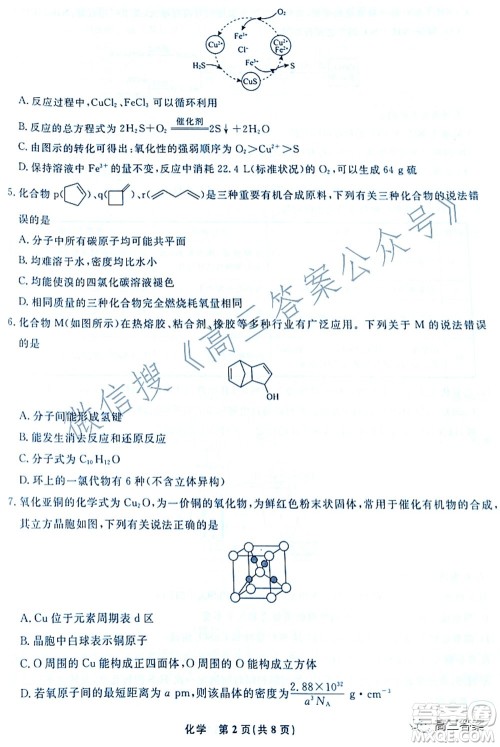 O₂
Fe²⁺
Cu²⁺
Cl⁻
Cu²⁺
Fe²⁺
H₂S
Fe³⁺
S
CuS
A. 反应过程中,CuCl₂、FeCl₃ 可以循环利用
B. 反应的总方程式为 2H₂S+O₂ ══催化剂══ 2S↓+2H₂O
C. 由图示的转化可得出:氧化性的强弱顺序为 O₂>Cu²⁺>S
D. 保持溶液中 Fe³⁺ 的量不变,反应中消耗 22.4 L(标准状况)的 O₂,可以生成 64 g 硫
5. 化合物 p( )、q( )、r( )是三种重要有机合成原料,下列有关三种化合物的说法错
误的是
A. 分子中所有碳原子均可能共平面
B. 均难溶于水,密度均比水小
C. 均能使溴的四氯化碳溶液褪色
D. 质量相同的三种化合物完全燃烧耗氧量相同
6. 化合物 M(如图所示)在热熔胶、粘合剂、橡胶等多种行业有广泛应用。下列关于 M 的说法错误
的是
OH
A. 分子间能形成氢键
B. 能发生消去反应和还原反应
C. 分子式为 C₁₀H₁₂O
D. 环上的一氯代物有 6 种(不含立体异构)
7. 氧化亚铜的化学式为 Cu₂O,为一价铜的氧化物,为鲜红色粉末状固体,常用于催化有机物的合成,
其立方晶胞如图,下列有关说法正确的是
A. Cu 位于元素周期表 d 区
B. 晶胞中白球表示铜原子
C. O 周围的 Cu 能构成正四面体,Cu 周围的 O 也能构成正四面体
D. 若氧原子间的最短距离为 a pm,则该晶体的密度为 2.88×10³²/a³N_A g·cm⁻³
化学 第 2 页(共 8 页)
微信搜《高三答案公众号》
高三答案